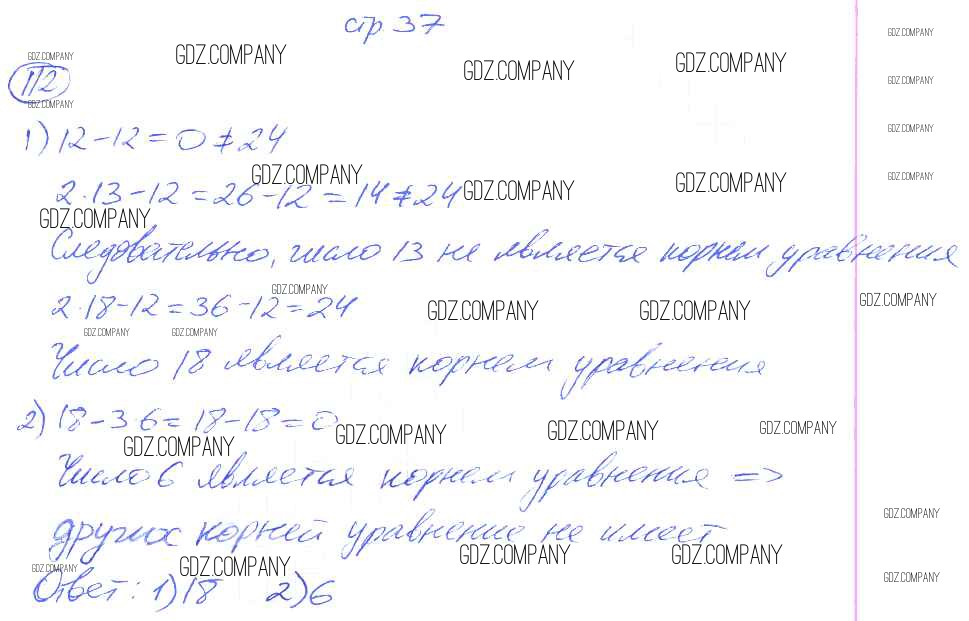 стр 37
GDZ.COMPANY GDZ.COMPANY GDZ.COMPANY GDZ.COMPANY GDZ.COMPANY
112
GDZ.COMPANY GDZ.COMPANY
1) 12-12=0≠24 GDZ.COMPANY
GDZ.COMPANY GDZ.COMPANY GDZ.COMPANY GDZ.COMPANY
2·13-12=26-12=14≠24
GDZ.COMPANY
Следовательно, число 13 не является корнем уравнения
GDZ.COMPANY
2·18-12=36-12=24 GDZ.COMPANY GDZ.COMPANY GDZ.COMPANY
GDZ.COMPANY GDZ.COMPANY
Число 18 является корнем уравнения
2) 18-3·6=18-18=0
GDZ.COMPANY GDZ.COMPANY GDZ.COMPANY GDZ.COMPANY
Число 6 является корнем уравнения =>
GDZ.COMPANY
других корней уравнение не имеет
GDZ.COMPANY GDZ.COMPANY GDZ.COMPANY GDZ.COMPANY GDZ.COMPANY
Ответ: 1) 18 2) 6